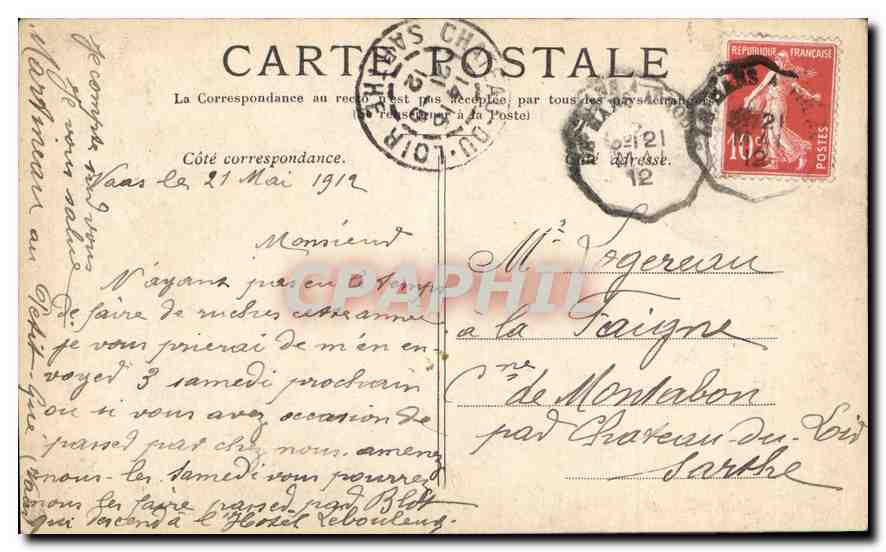 CARTE POSTALE
La Correspondance au recto n'est pas acceptée par tous les pays étrangers
(Se renseigner à la Poste)
Côté correspondance.
Côté adresse.
Vaas le 21 Mai 1912
Monsieur
N'ayant pas eu le temps
de faire de ruches cette année
je vous prierai de m'en en-
voyer 3 samedi prochain
ou si vous avez occasion de
passer par chez nous amenez
nous-les samedi vous pourrez
nous les faire passer par Blot
qui descend à l'Hotel Lebouleux.
Je compte sur vous
Je vous salue
Martineau au Petit-Gué (Vaas
Mr Logereau
à la Faigne
Cne de Montabon
par Chateau-du-Loir
Sarthe
CHATEAU-DU-LOIR
SARTHE
21
12
LE MANS A
21
12
REPUBLIQUE FRANÇAISE
10c
POSTES
LE MANS A
21
12
CPAPHIL